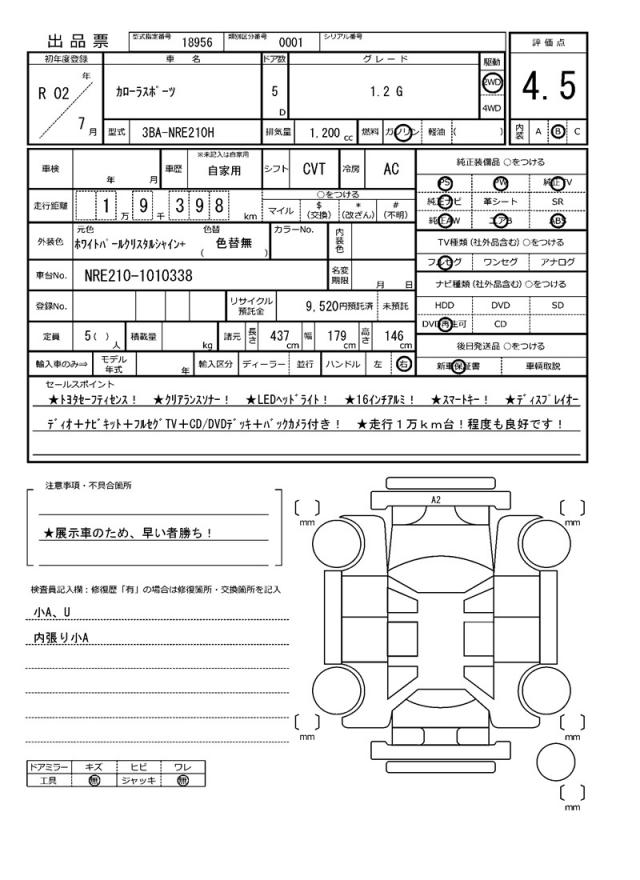 出品票 型式指定番号 18956 類別区分番号 0001 シリアル番号
評価点
初年度登録 車名 ドア数 グレード 駆動
R 02 年 7 月 カローラスポーツ 5 D 1.2 G 2WD 4WD
4.5
型式 3BA-NRE210H 排気量 1.200 cc 燃料 ガソリン 軽油 ( ) 内装 A B C
車検 年 月 車歴 ※未記入は自家用 自家用 シフト CVT 冷房 AC
純正装備品 ○をつける
PS PW 純正TV
走行距離 1 万 9 千 3 9 8 km ○をつける
マイル $ (交換) * (改ざん) # (不明)
純正ナビ 革シート SR
純正AW エアB ABS
外装色 元色 ホワイトパールクリスタルシャイン+ 色替 ( 色替無 ) カラーNo. 内装色
TV種類 (社外品含む) ○をつける
フルセグ ワンセグ アナログ
車台No. NRE210-1010338 名変期限 月 日
ナビ種類 (社外品含む) ○をつける
登録No. リサイクル預託金 9,520円預託済 未預託
HDD DVD SD
DVD再生可 CD
定員 5( ) 人 積載量 kg 諸元 長さ 437 cm 幅 179 cm 高さ 146 cm
後日発送品 ○をつける
輸入車のみ⇒ モデル年式 年 輸入区分 ディーラー 並行 ハンドル 左 右
新車保証書 車輌取説
セールスポイント
★トヨタセーフティセンス！ ★クリアランスソナー！ ★LEDヘッドライト！ ★16インチアルミ！ ★スマートキー！ ★ディスプレイオー
ディオ+ナビキット+フルセグTV+CD/DVDデッキ+バックカメラ付き！ ★走行1万km台！程度も良好です！
注意事項・不具合箇所
★展示車のため、早い者勝ち！
検査員記入欄：修復歴「有」の場合は修復箇所・交換箇所を記入
小A、U
内張り小A
ドアミラー キズ ヒビ ワレ
工具 無 ジャッキ 無
A2
mm
mm
mm
mm
mm